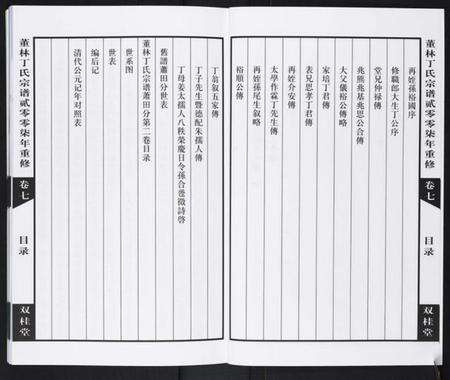 董林丁氏宗谱贰零零柒年重修
卷七
目录
双桂堂
再姪孫裕國序
修職郎大生丁公序
堂兄仲祿傳
兆熊兆基兆思公合傳
大父儀裕公傳略
家培丁君傳
表兄思孝丁君傳
再姪介安傳
太學作霖丁先生傳
再姪孫尾生叙略
裕順公傳
丁翁叙五家傳
丁子先生暨德配朱孺人傳
丁母姜太孺人八秩榮慶日令孫合巹徵詩啓
舊譜蕭田分世表
董林丁氏宗谱蕭田分第二卷目录
世系图
世表
编后记
清代公元记年对照表
董林丁氏宗谱贰零零柒年重修
卷七
目录
双桂堂